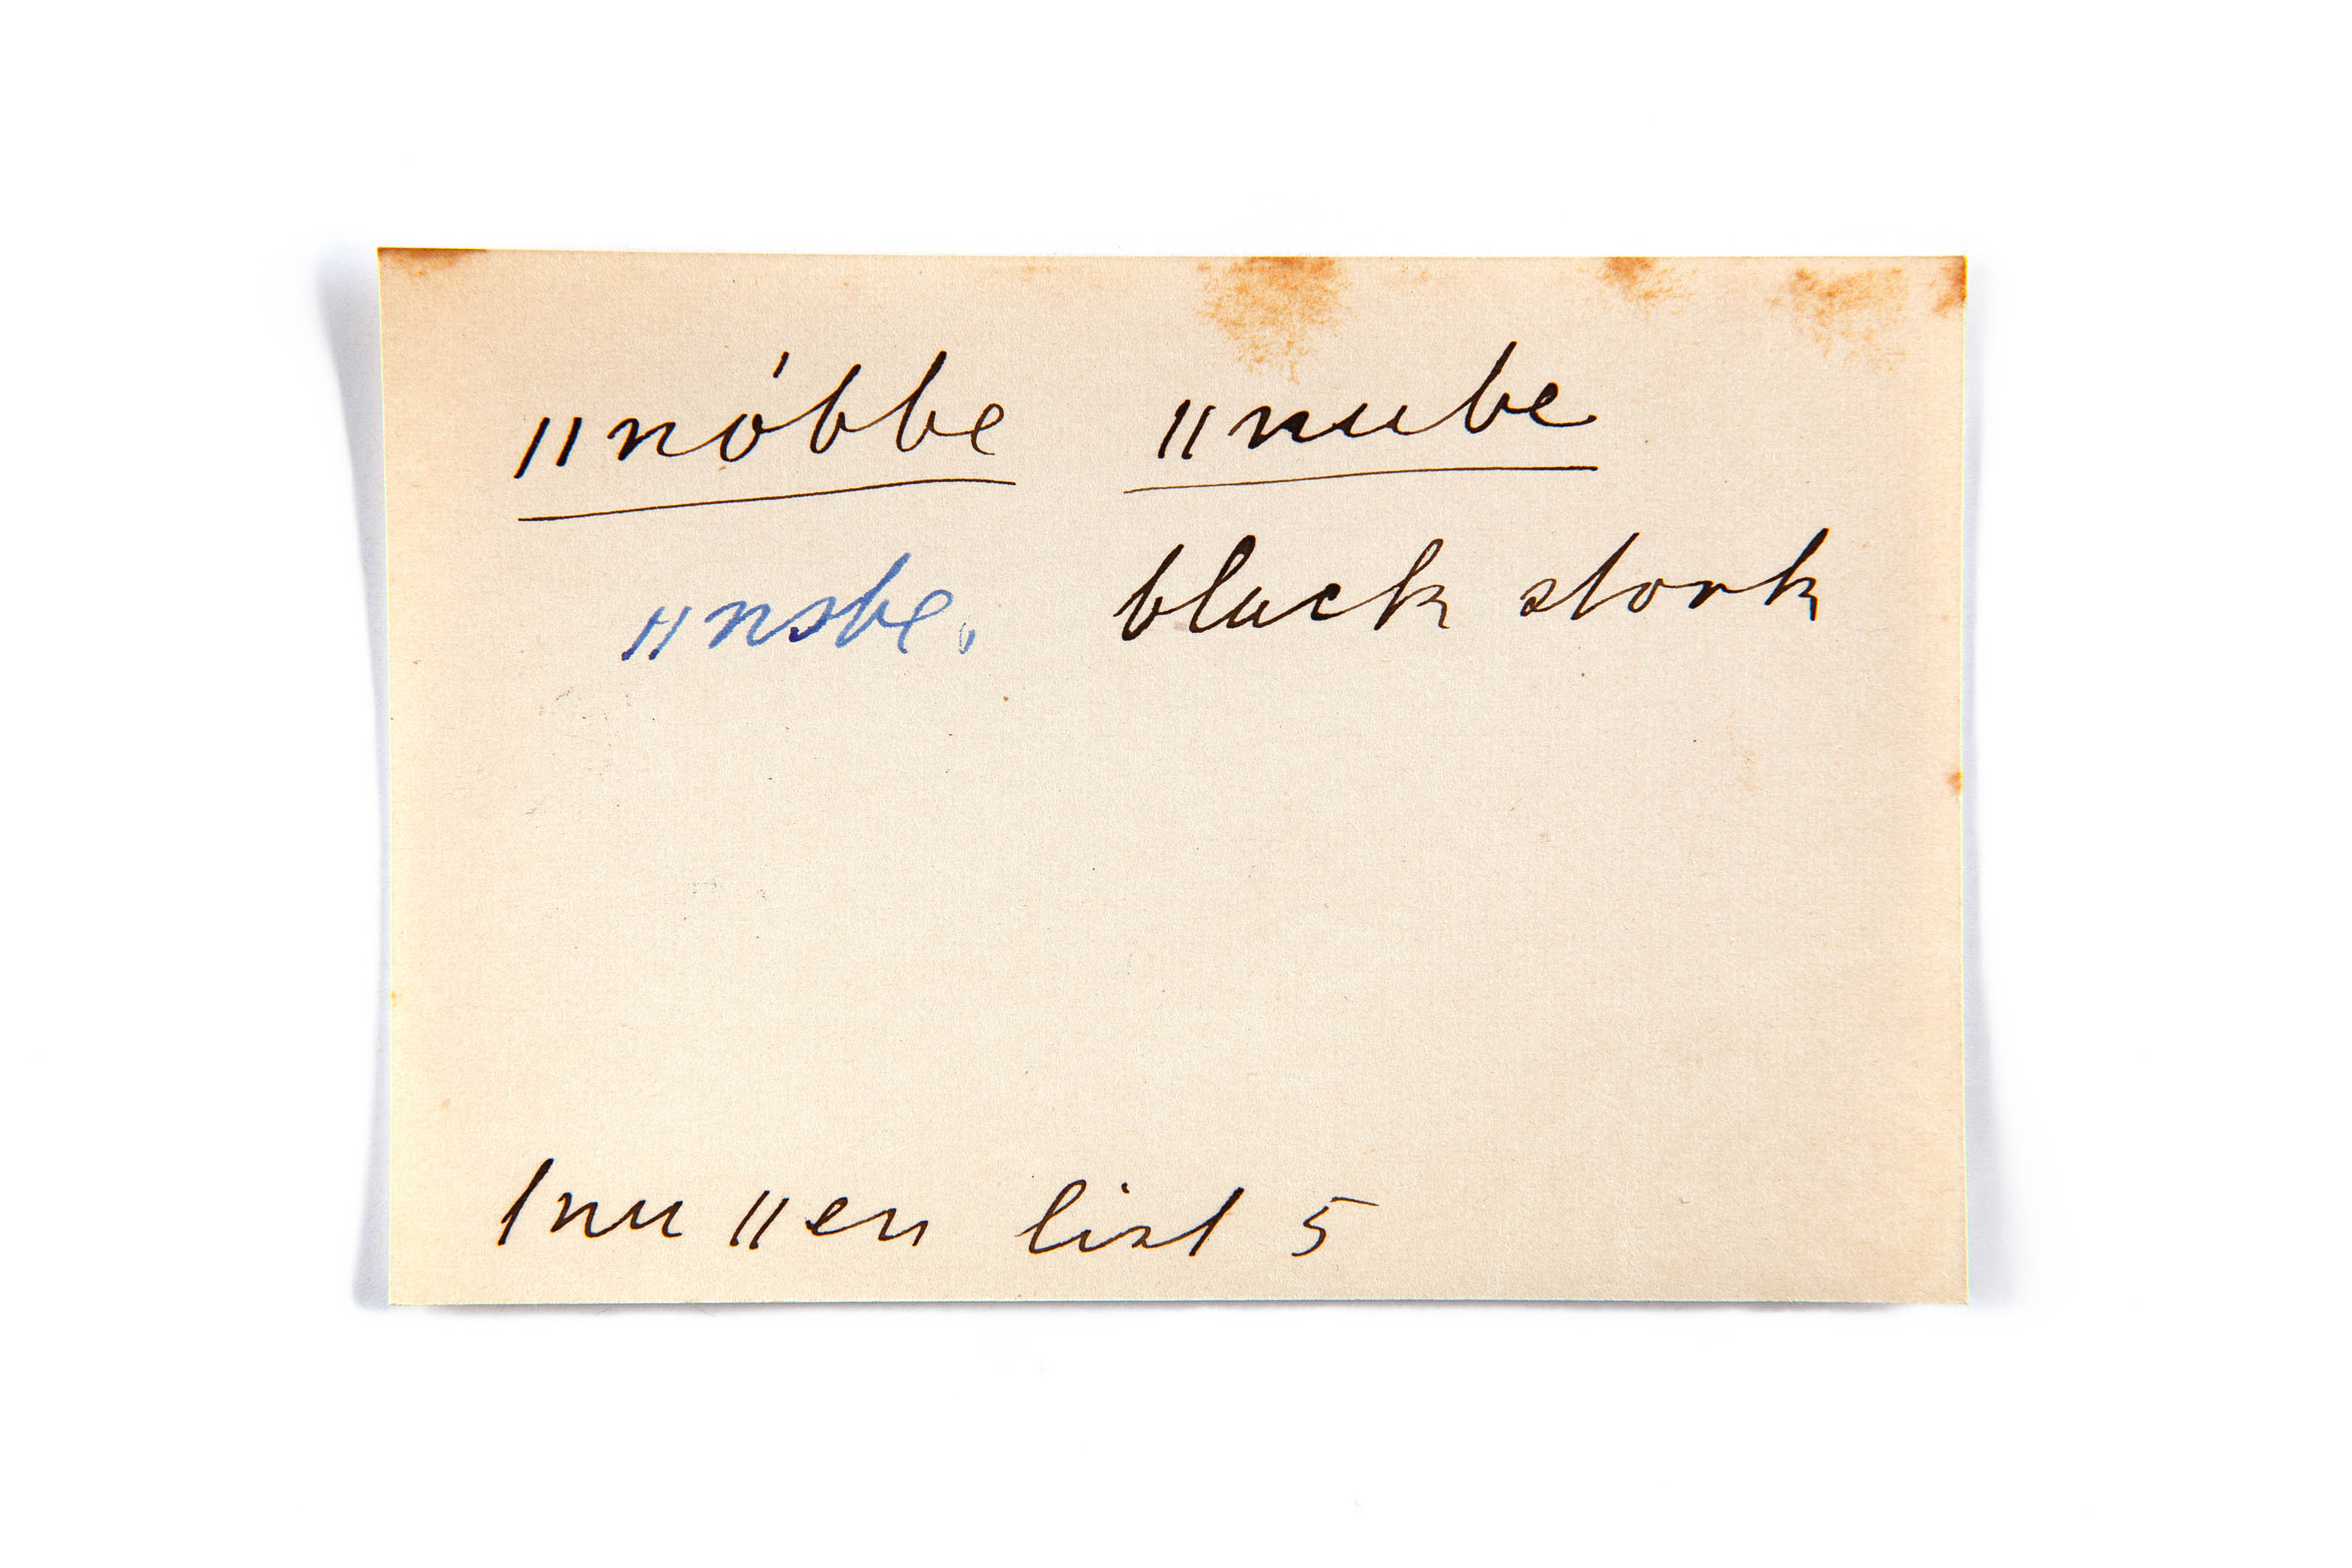 ǁnóbbe ǁnube
ǁnɔbe. black stork
ǀnu ǁen list 5